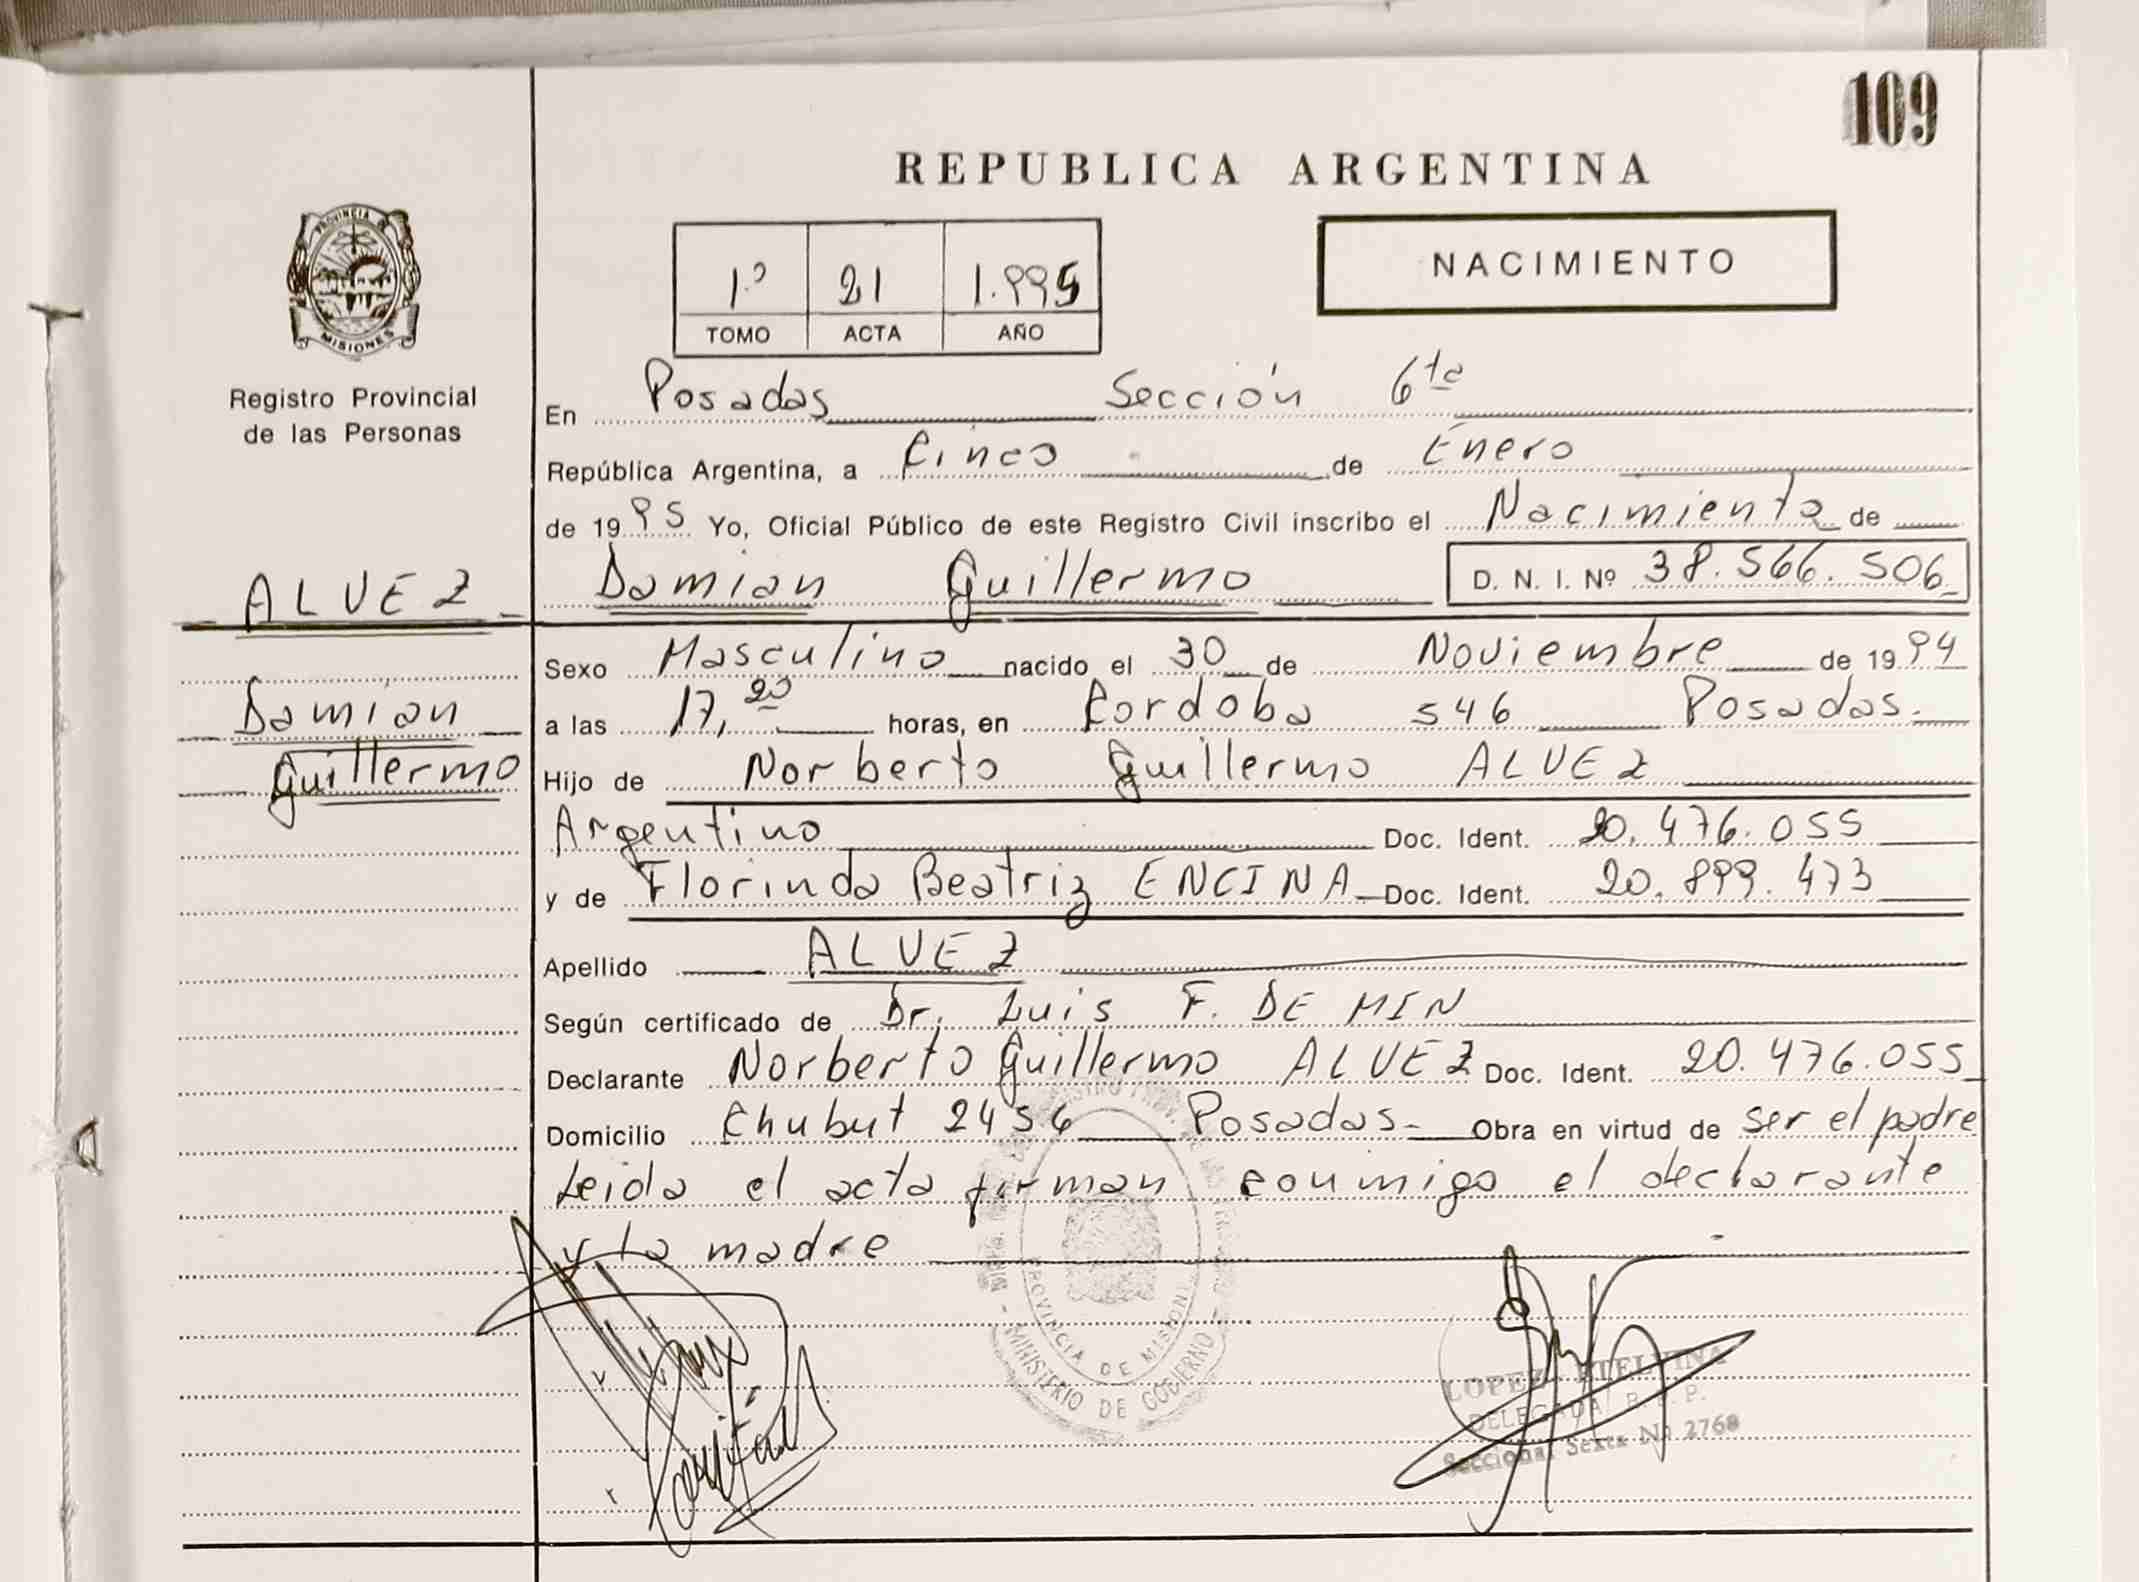 109
REPUBLICA ARGENTINA
NACIMIENTO
1º 21 1.995
TOMO ACTA AÑO
PROVINCIA
MISIONES
Registro Provincial
de las Personas
En Posadas Sección 6ta
República Argentina, a Cinco de Enero
de 1995 Yo, Oficial Público de este Registro Civil inscribo el Nacimiento de
ALVEZ
Damian Guillermo D. N. I. Nº 38.566.506
Damian
Guillermo
Sexo Masculino nacido el 30 de Noviembre de 1994
a las 17,20 horas, en Cordoba 546 Posadas.
Hijo de Norberto Guillermo ALVEZ
Argentino Doc. Ident. 20.476.055
y de Florinda Beatriz ENCINA Doc. Ident. 20.899.473
Apellido ALVEZ
Según certificado de Dr. Luis F. DE MIN
Declarante Norberto Guillermo ALVEZ Doc. Ident. 20.476.055
Domicilio Chubut 2456 Posadas- Obra en virtud de ser el padre
Leida el acta firman conmigo el declarante
y la madre
PROVINCIA DE MISIONES
MINISTERIO DE GOBIERNO
LOPEZ ETELVINA
DELEGADA R. P. P.
Seccional Sexta Nº 2768